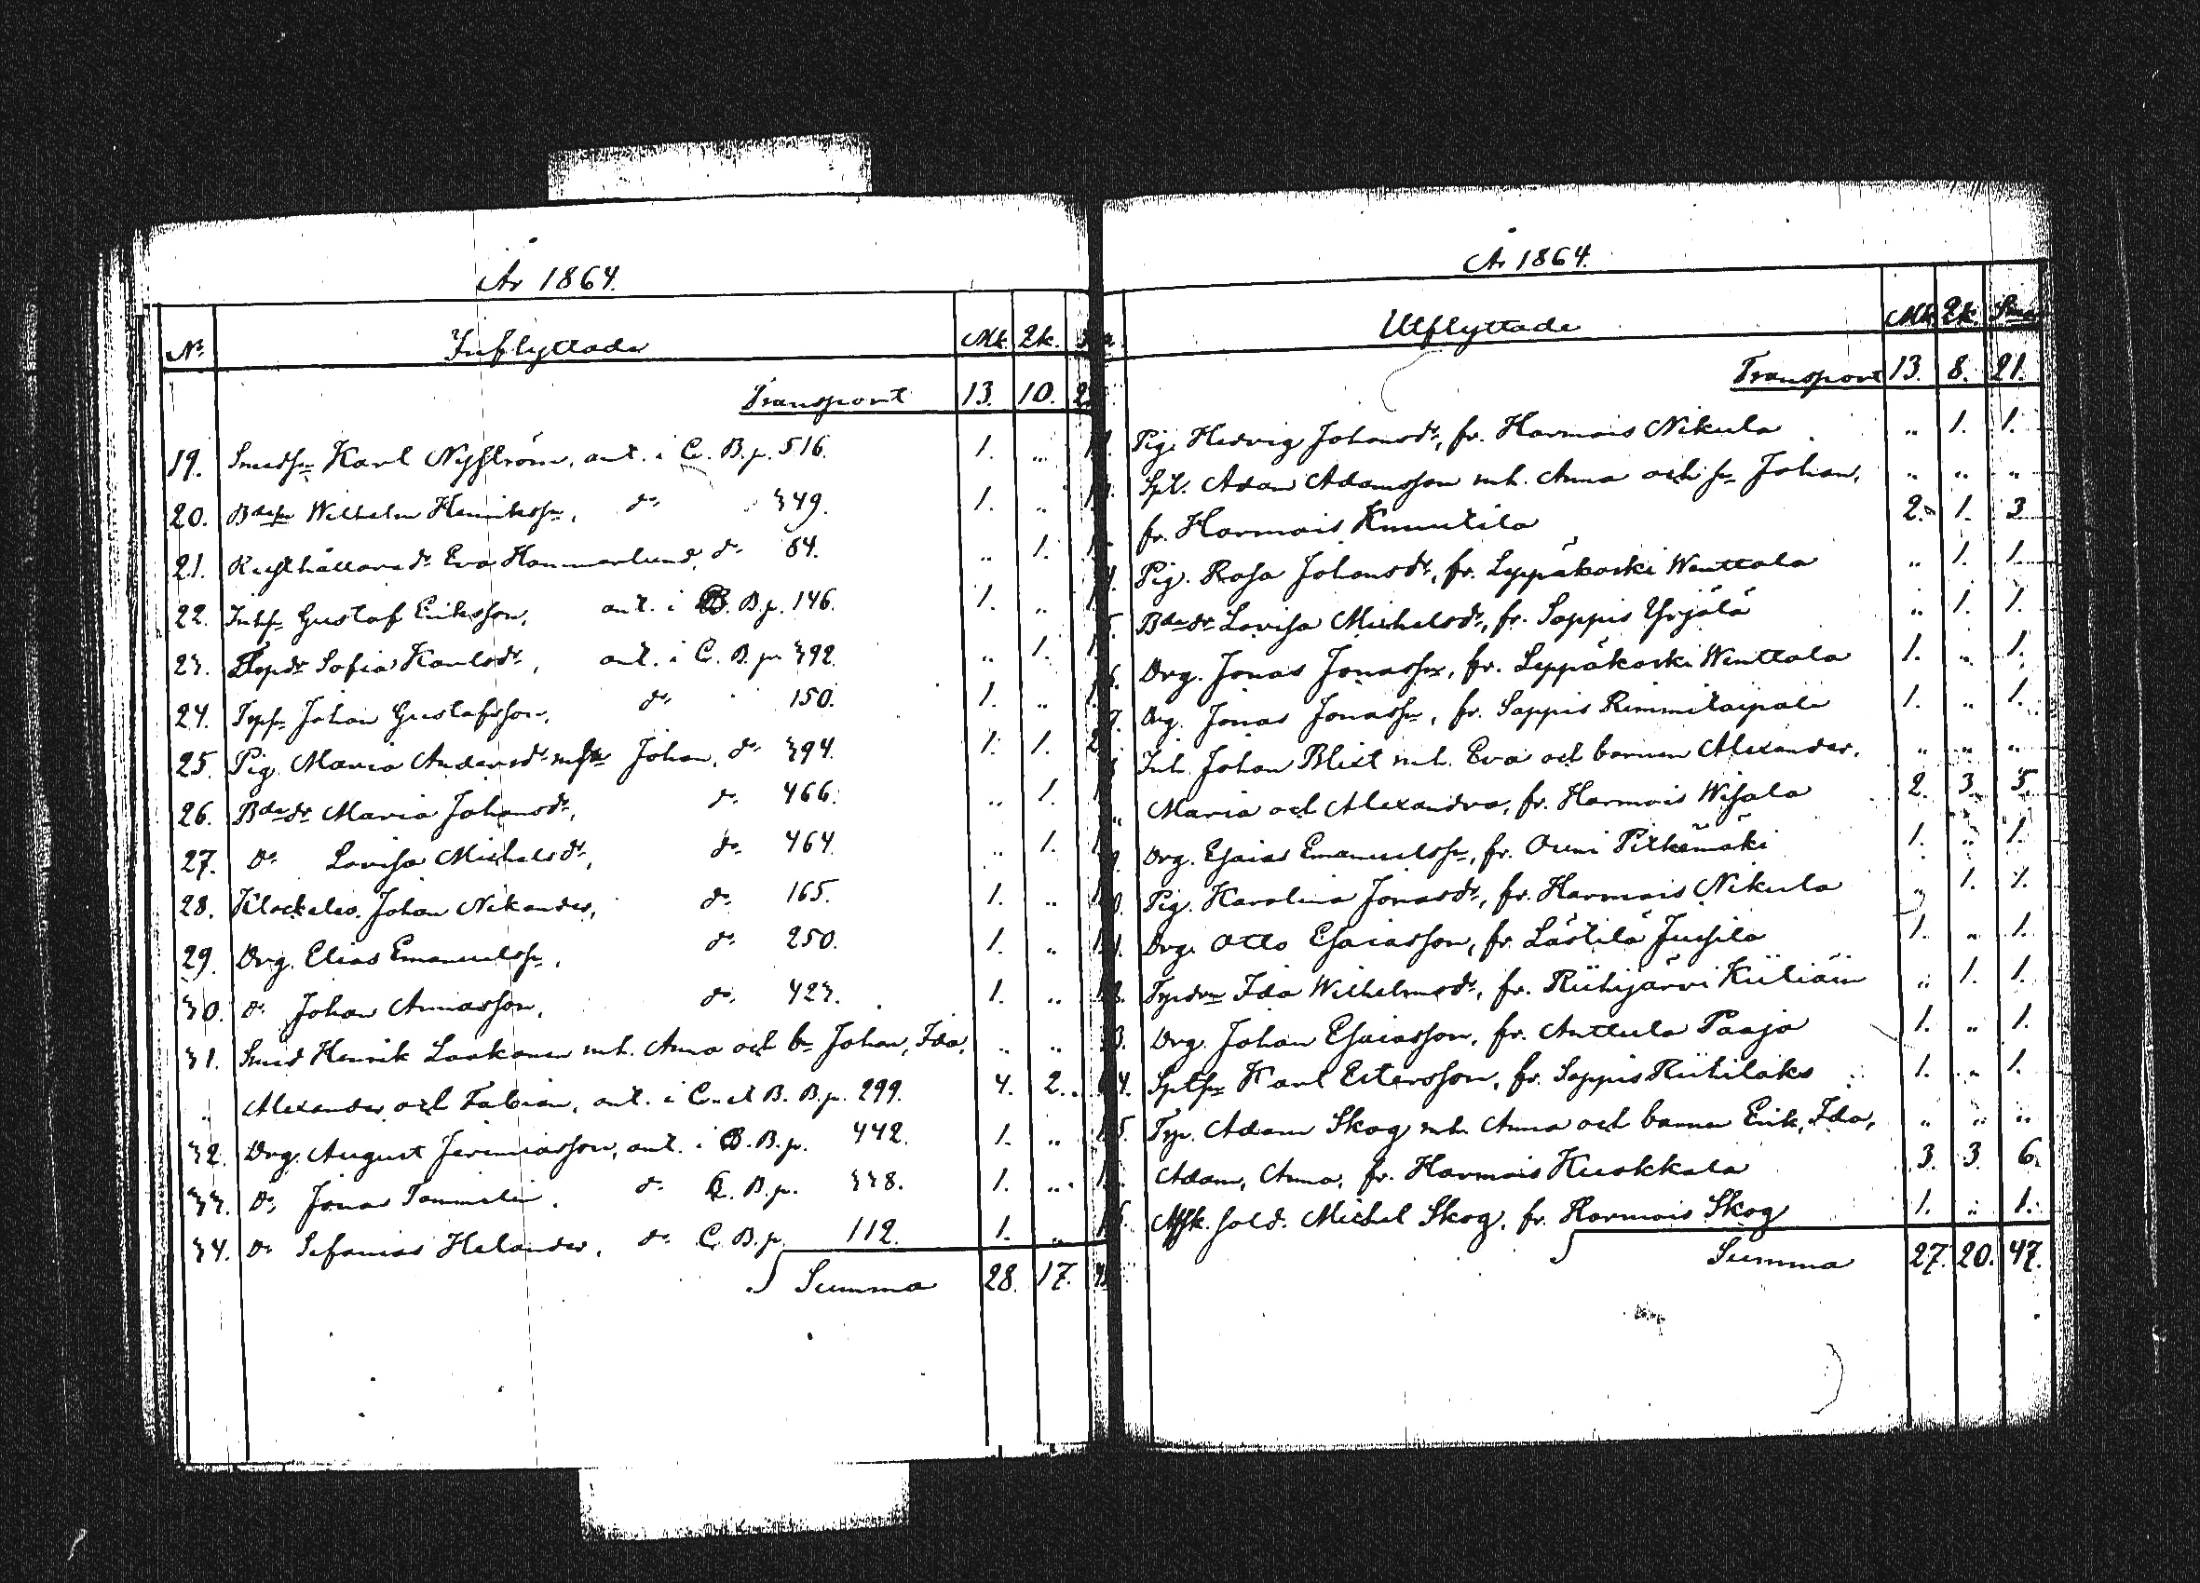 År 1864.
No Inflyttade Mk. Qk. Sma
Transport 13. 10. 2
19. Smedsn Karl Nyström, ant. i C. B. p. 516. 1. ..
20. Bdesn Wilhelm Henrikssn, do 349. 1. ..
21. Rusthållaredr Eva Hammarlund, do 64. .. 1.
22. Inhsn Gustaf Eriksson, ant. i B. B. p. 146. 1. ..
23. Sofia Karlsdr, ant. i C. B. p. 392. .. 1.
24. Torpsn Johan Gustafsson, do 150. 1. ..
25. Pig. Maria Andersdr m. sn Johan, do 394. 1. 1. 2
26. Bdedr Maria Johansdr, do 466. .. 1.
27. do Lovisa Michelsdr, do 464. .. 1.
28. Klockelev. Johan Nikander, do 165. 1. ..
29. Drg. Elias Emanuelssn, do 250. 1. ..
30. do Johan Annasson, do 423. 1. ..
31. Smed Henrik Laakonen m.h. Anna och bn Johan, Ida, .. ..
.. Alexander och Fabian, ant. i C. et B. B. p. 299. 4. 2.
32. Drg. August Jeremiasson, ant. i B. B. p. 442. 1. ..
33. do Jonas Tammelin, do C. B. p. 338. 1. ..
34. do Sefanias Helander, do C. B. p. 112. 1. ..
Summa 28. 17.
År 1864.
Utflyttade Mk. Qk. Sma
Transport 13. 8. 21.
Pig. Hedvig Johansdr, fr. Harmois Nikula .. 1. 1.
Spl. Adam Adamsson m.h. Anna och sn Johan, .. .. ..
fr. Harmois Knuutila 2. 1. 3
Pig. Rosa Johansdr, fr. Leppäkoski Wenttala .. 1. 1.
Bdedr Lovisa Michelsdr, fr. Sappis Yrjälä .. 1. 1.
Drg. Jonas Jonassn, fr. Leppäkoski Wenttala 1. .. 1.
Drg. Jonas Jonassn, fr. Sappis Rimmitaipale 1. .. 1.
Inh. Johan Blixt m.h. Eva och barnen Alexander, .. .. ..
Maria och Alexandra, fr. Harmois Wisala 2. 3. 5.
Drg. Esaias Emanuelssn, fr. Auni Pitkämäki 1. .. 1.
Pig. Karolina Jonasdr, fr. Harmois Nikula .. 1. 1.
Drg. Otto Esaiasson, fr. Lästilä Jussila 1. .. 1.
Torpdr Ida Wilhelmsdr, fr. Riihijärvi Kiiliäin .. 1. 1.
Drg. Johan Esaiasson, fr. Anttula Paajo 1. .. 1.
Splsn Karl Estersson, fr. Sappis Riihilaks 1. .. 1.
Torp. Adam Skog m.h. Anna och barnen Erik, Ida, .. .. ..
Adam, Anna, fr. Harmois Kuokkala 3. 3. 6.
Afsk. sold. Michel Skog, fr. Harmois Skog 1. .. 1.
Summa 27. 20. 47.